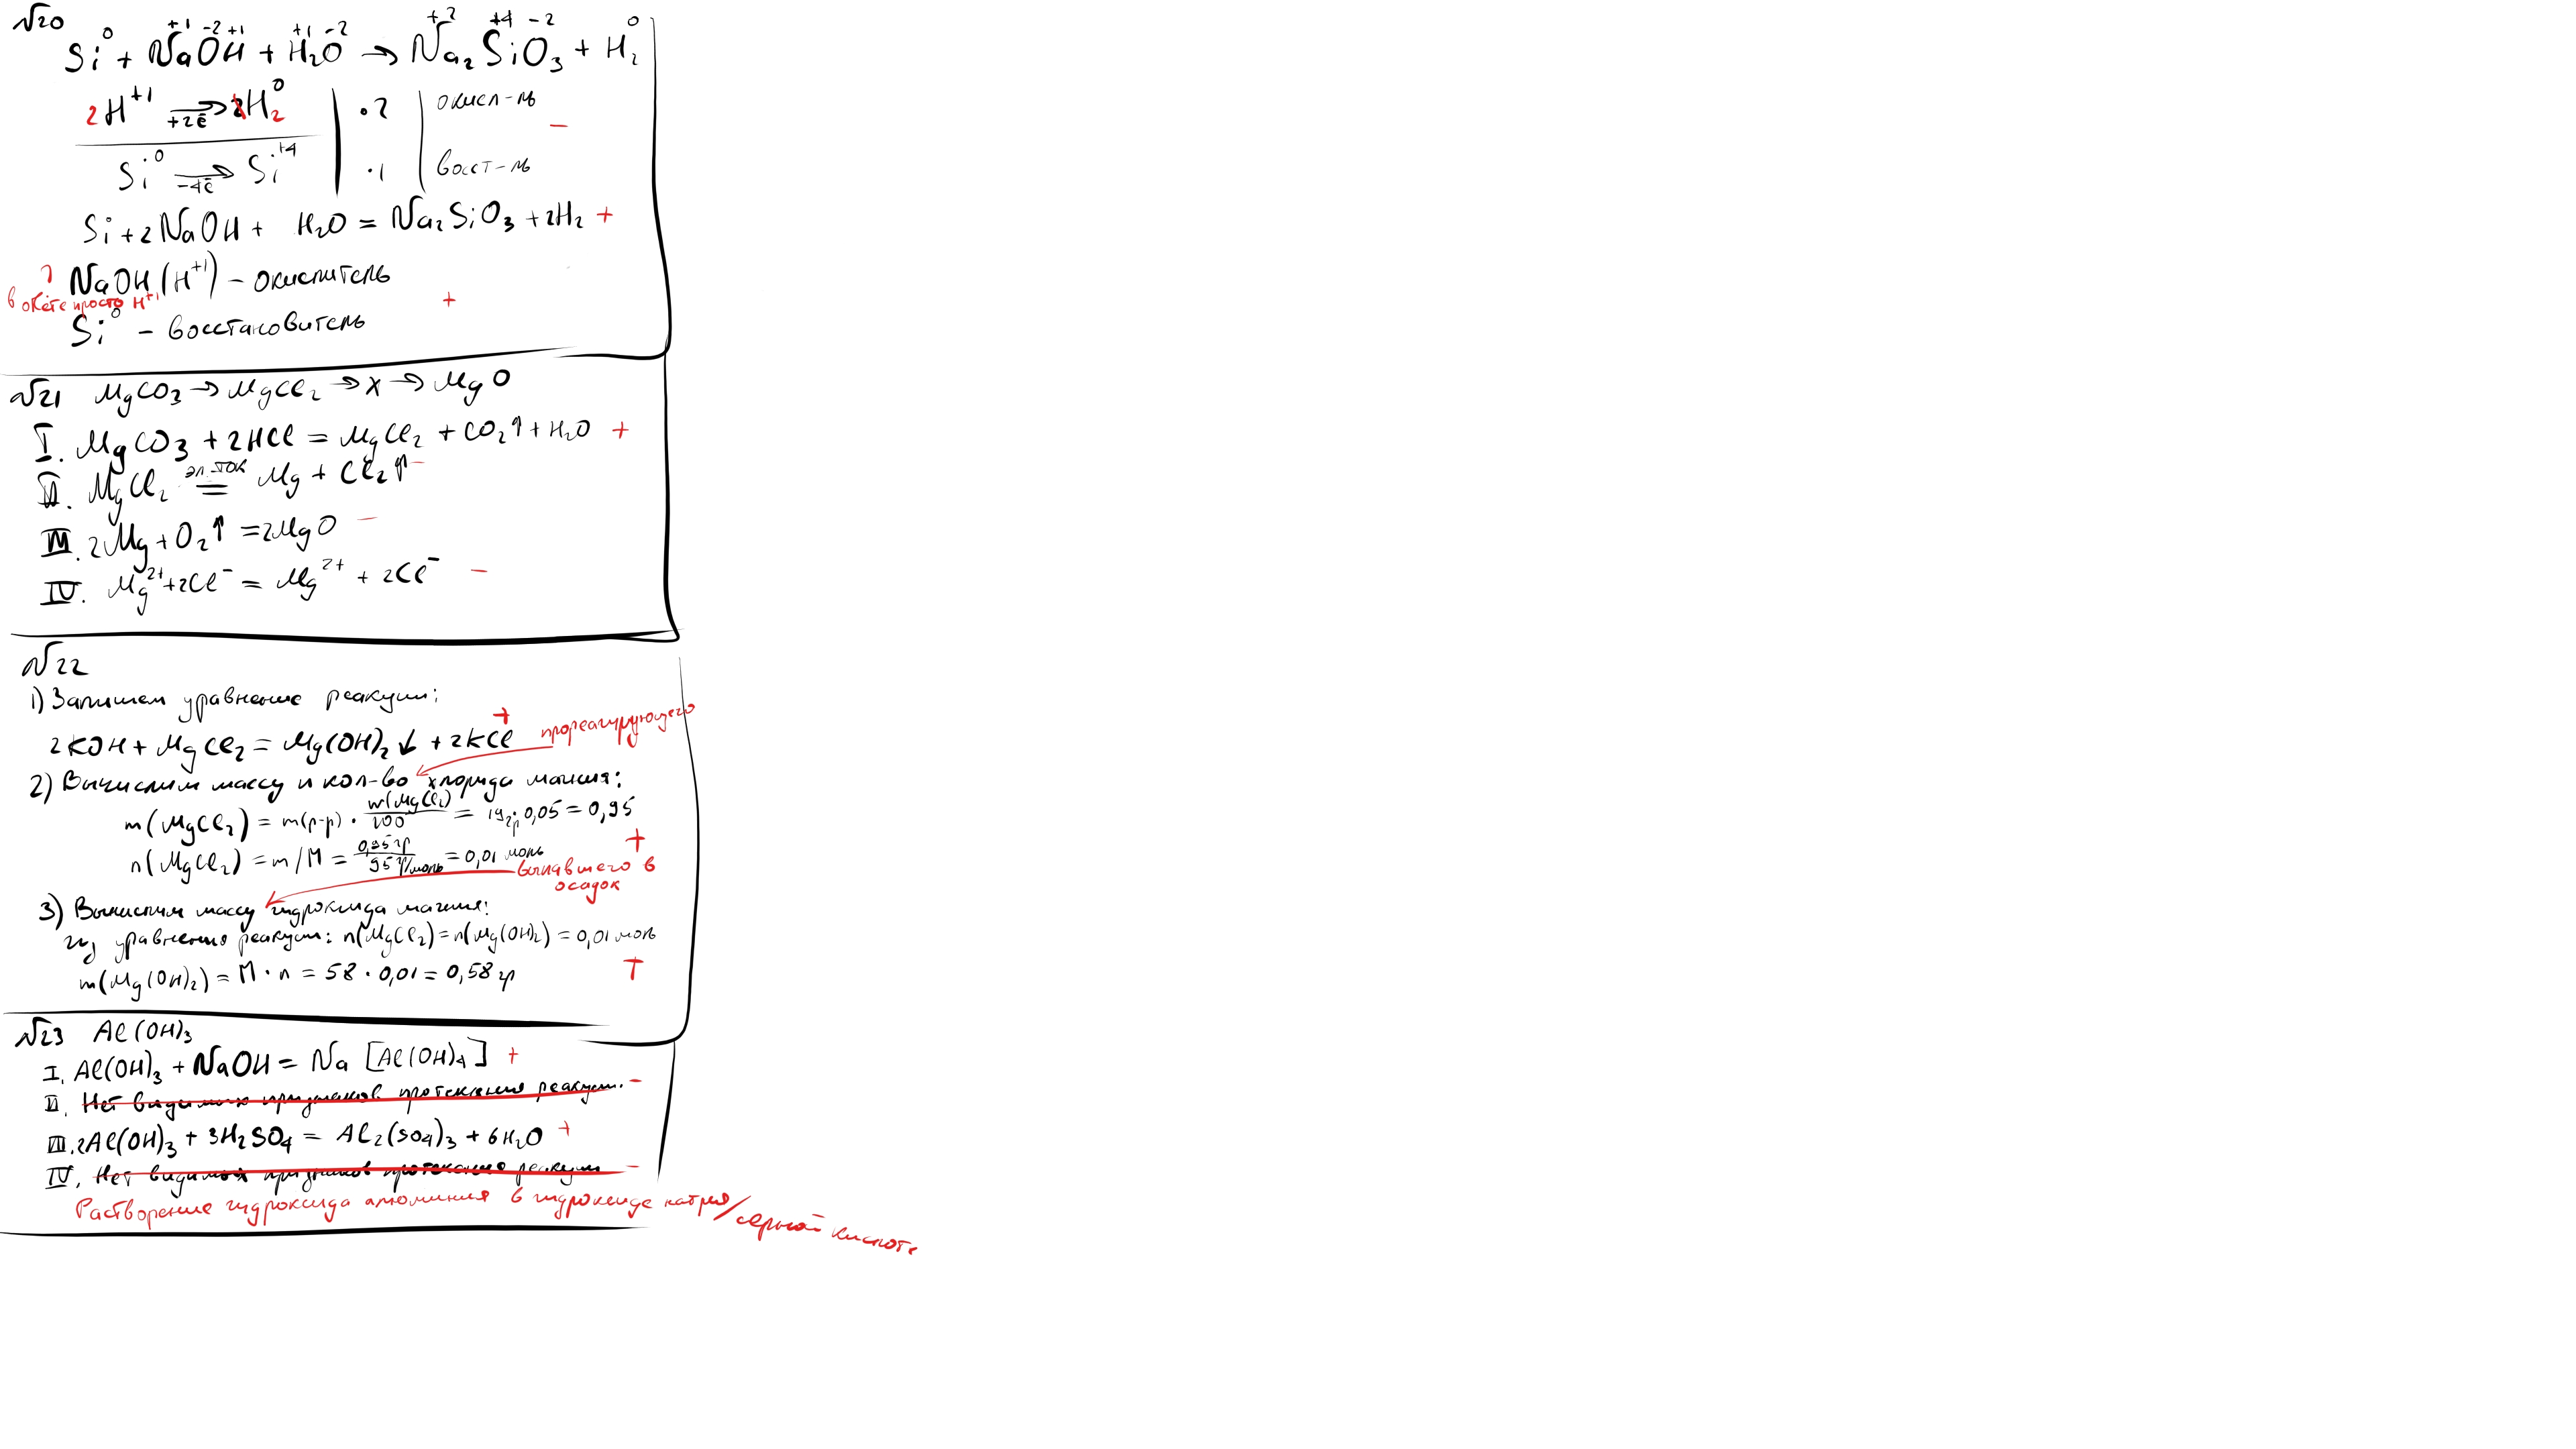 №20
Si⁰ + Na⁺¹O⁻²H⁺¹ + H₂⁺¹O⁻² → Na₂⁺²Si⁺⁴O₃⁻² + H₂⁰
2H⁺¹ →(+2ē) H₂⁰ | ·2 | окисл-ль −
Si⁰ →(−4ē) Si⁺⁴ | ·1 | восст-ль
Si + 2NaOH + H₂O = Na₂SiO₃ + 2H₂ +
? NaOH (H⁺¹) – окислитель
в ответе просто H⁺¹ +
Si⁰ – восстановитель
№21 MgCO₃ → MgCl₂ → X → MgO
I. MgCO₃ + 2HCl = MgCl₂ + CO₂↑ + H₂O +
II. MgCl₂ =(эл. ток) Mg + Cl₂↑ −
III. 2Mg + O₂↑ = 2MgO −
IV. Mg²⁺ + 2Cl⁻ = Mg²⁺ + 2Cl⁻ −
№22
1) Запишем уравнение реакции:
2KOH + MgCl₂ = Mg(OH)₂↓ + 2KCl + прореагирующего
2) Вычислим массу и кол-во хлорида магния:
m(MgCl₂) = m(р-р) · w(MgCl₂)/100 = 19гр · 0,05 = 0,95
n(MgCl₂) = m/M = 0,95гр/95гр/моль = 0,01 моль +
выпавшего в
осадок
3) Вычислим массу гидроксида магния:
из уравнения реакции: n(MgCl₂) = n(Mg(OH)₂) = 0,01 моль
m(Mg(OH)₂) = M · n = 58 · 0,01 = 0,58 гр +
№23 Al(OH)₃
I. Al(OH)₃ + NaOH = Na[Al(OH)₄] +
II. Нет видимых признаков протекания реакции. −
III. 2Al(OH)₃ + 3H₂SO₄ = Al₂(SO₄)₃ + 6H₂O +
IV. Нет видимых признаков протекания реакции −
Растворение гидроксида алюминия в гидроксиде натрия/серной кислоте